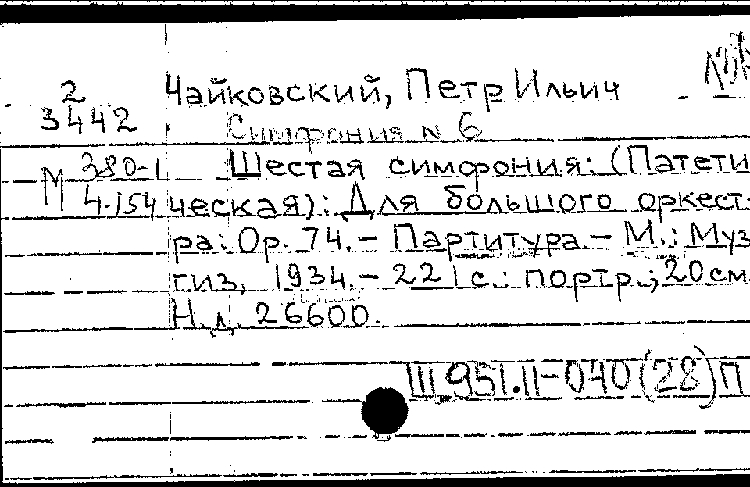 2
3442
Чайковский, Петр Ильич
Симфония N 6
М 380-1
4.154
Шестая симфония: (Патети
ческая): Для большого оркест-
ра: Ор. 74. - Партитура. - М.: Муз
гиз, 1934. - 221 с.: портр.; 20 см
Н.д. 26600.
III.951.II-040(28)П